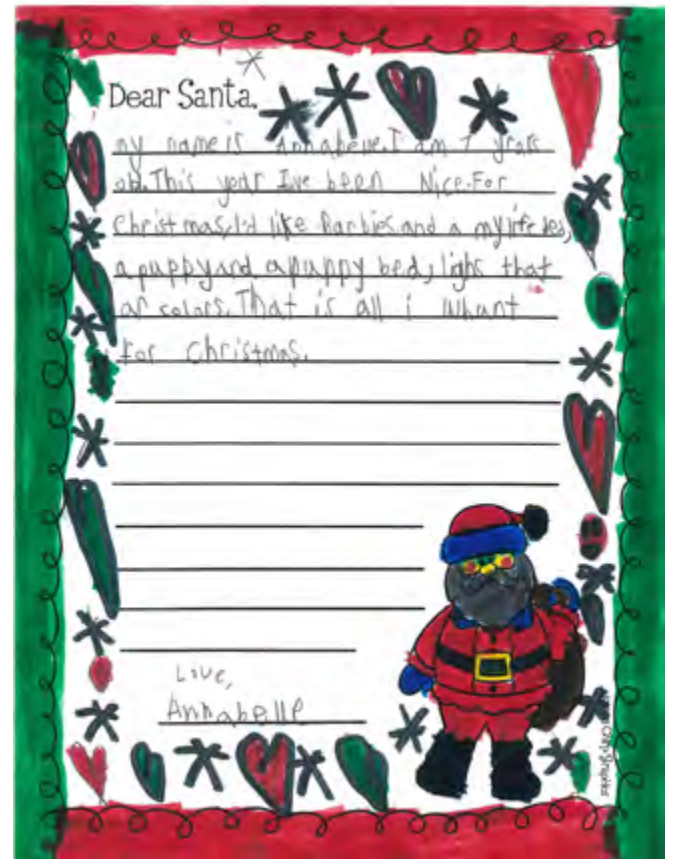 Dear Santa,
my name is Annabelle.I am 7 years
old.This year Ive been Nice.For
Christmas,I'd like Barbies and a my life bed,
a puppy and a puppy bed, light that
ar colors.That is all i whant
For Christmas.
Love,
Annabelle